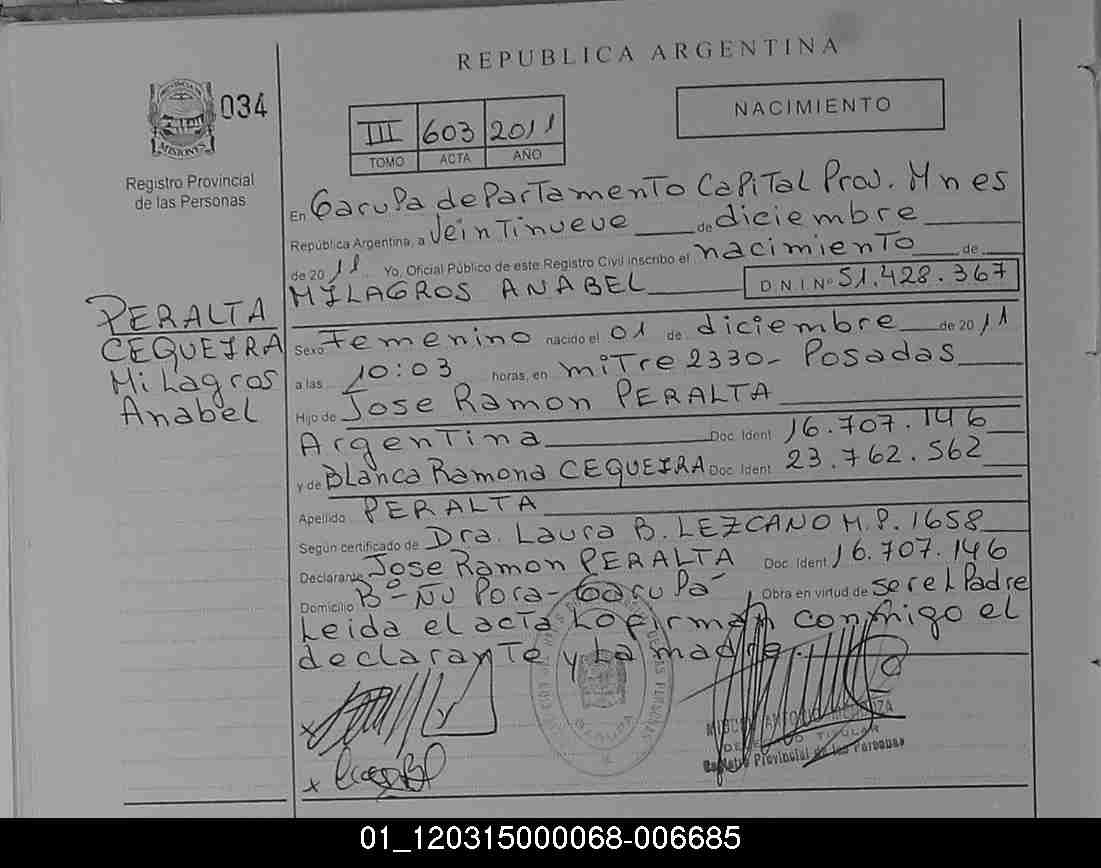 REPUBLICA ARGENTINA
PROVINCIA DE
MISIONES
034
Registro Provincial
de las Personas
III 603 2011
TOMO ACTA AÑO
NACIMIENTO
En Garupa departamento Capital Prov. Mnes
República Argentina, a Veintinueve de diciembre
de 20 11 Yo, Oficial Público de este Registro Civil inscribo el nacimiento de
MILAGROS ANABEL DNI Nº 51.428.367
PERALTA
CEQUEIRA
Milagros
Anabel
Sexo Femenino nacido el 01 de diciembre de 20 11
a las 10:03 horas, en mitre 2330- Posadas
Hijo de Jose Ramon PERALTA
Argentina Doc. Ident 16.707.146
y de Blanca Ramona CEQUEIRA Doc. Ident 23.762.562
Apellido PERALTA
Según certificado de Dra. Laura B. LEZCANO M.P. 1658
Declarante Jose Ramon PERALTA Doc. Ident. 16.707.146
Domicilio Bº Ñu Pora- Garupá Obra en virtud de ser el Padre
Leida el acta la firman conmigo el
declarante y la madre.
GARUPA
ANTONIO
TITULAR
Registro Provincial de las Personas
01_120315000068-006685